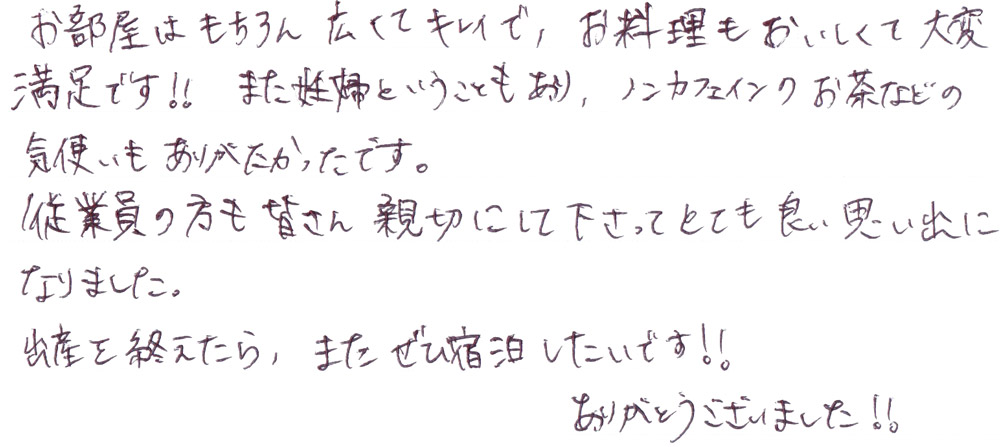 お部屋はもちろん広くてキレイで, お料理もおいしくて大変
満足です!! また妊婦ということもあり, ノンカフェインのお茶などの
気使いもありがたかったです。
従業員の方も皆さん親切にして下さってとても良い思い出に
なりました。
出産を終えたら, またぜひ宿泊したいです!!
ありがとうございました!!